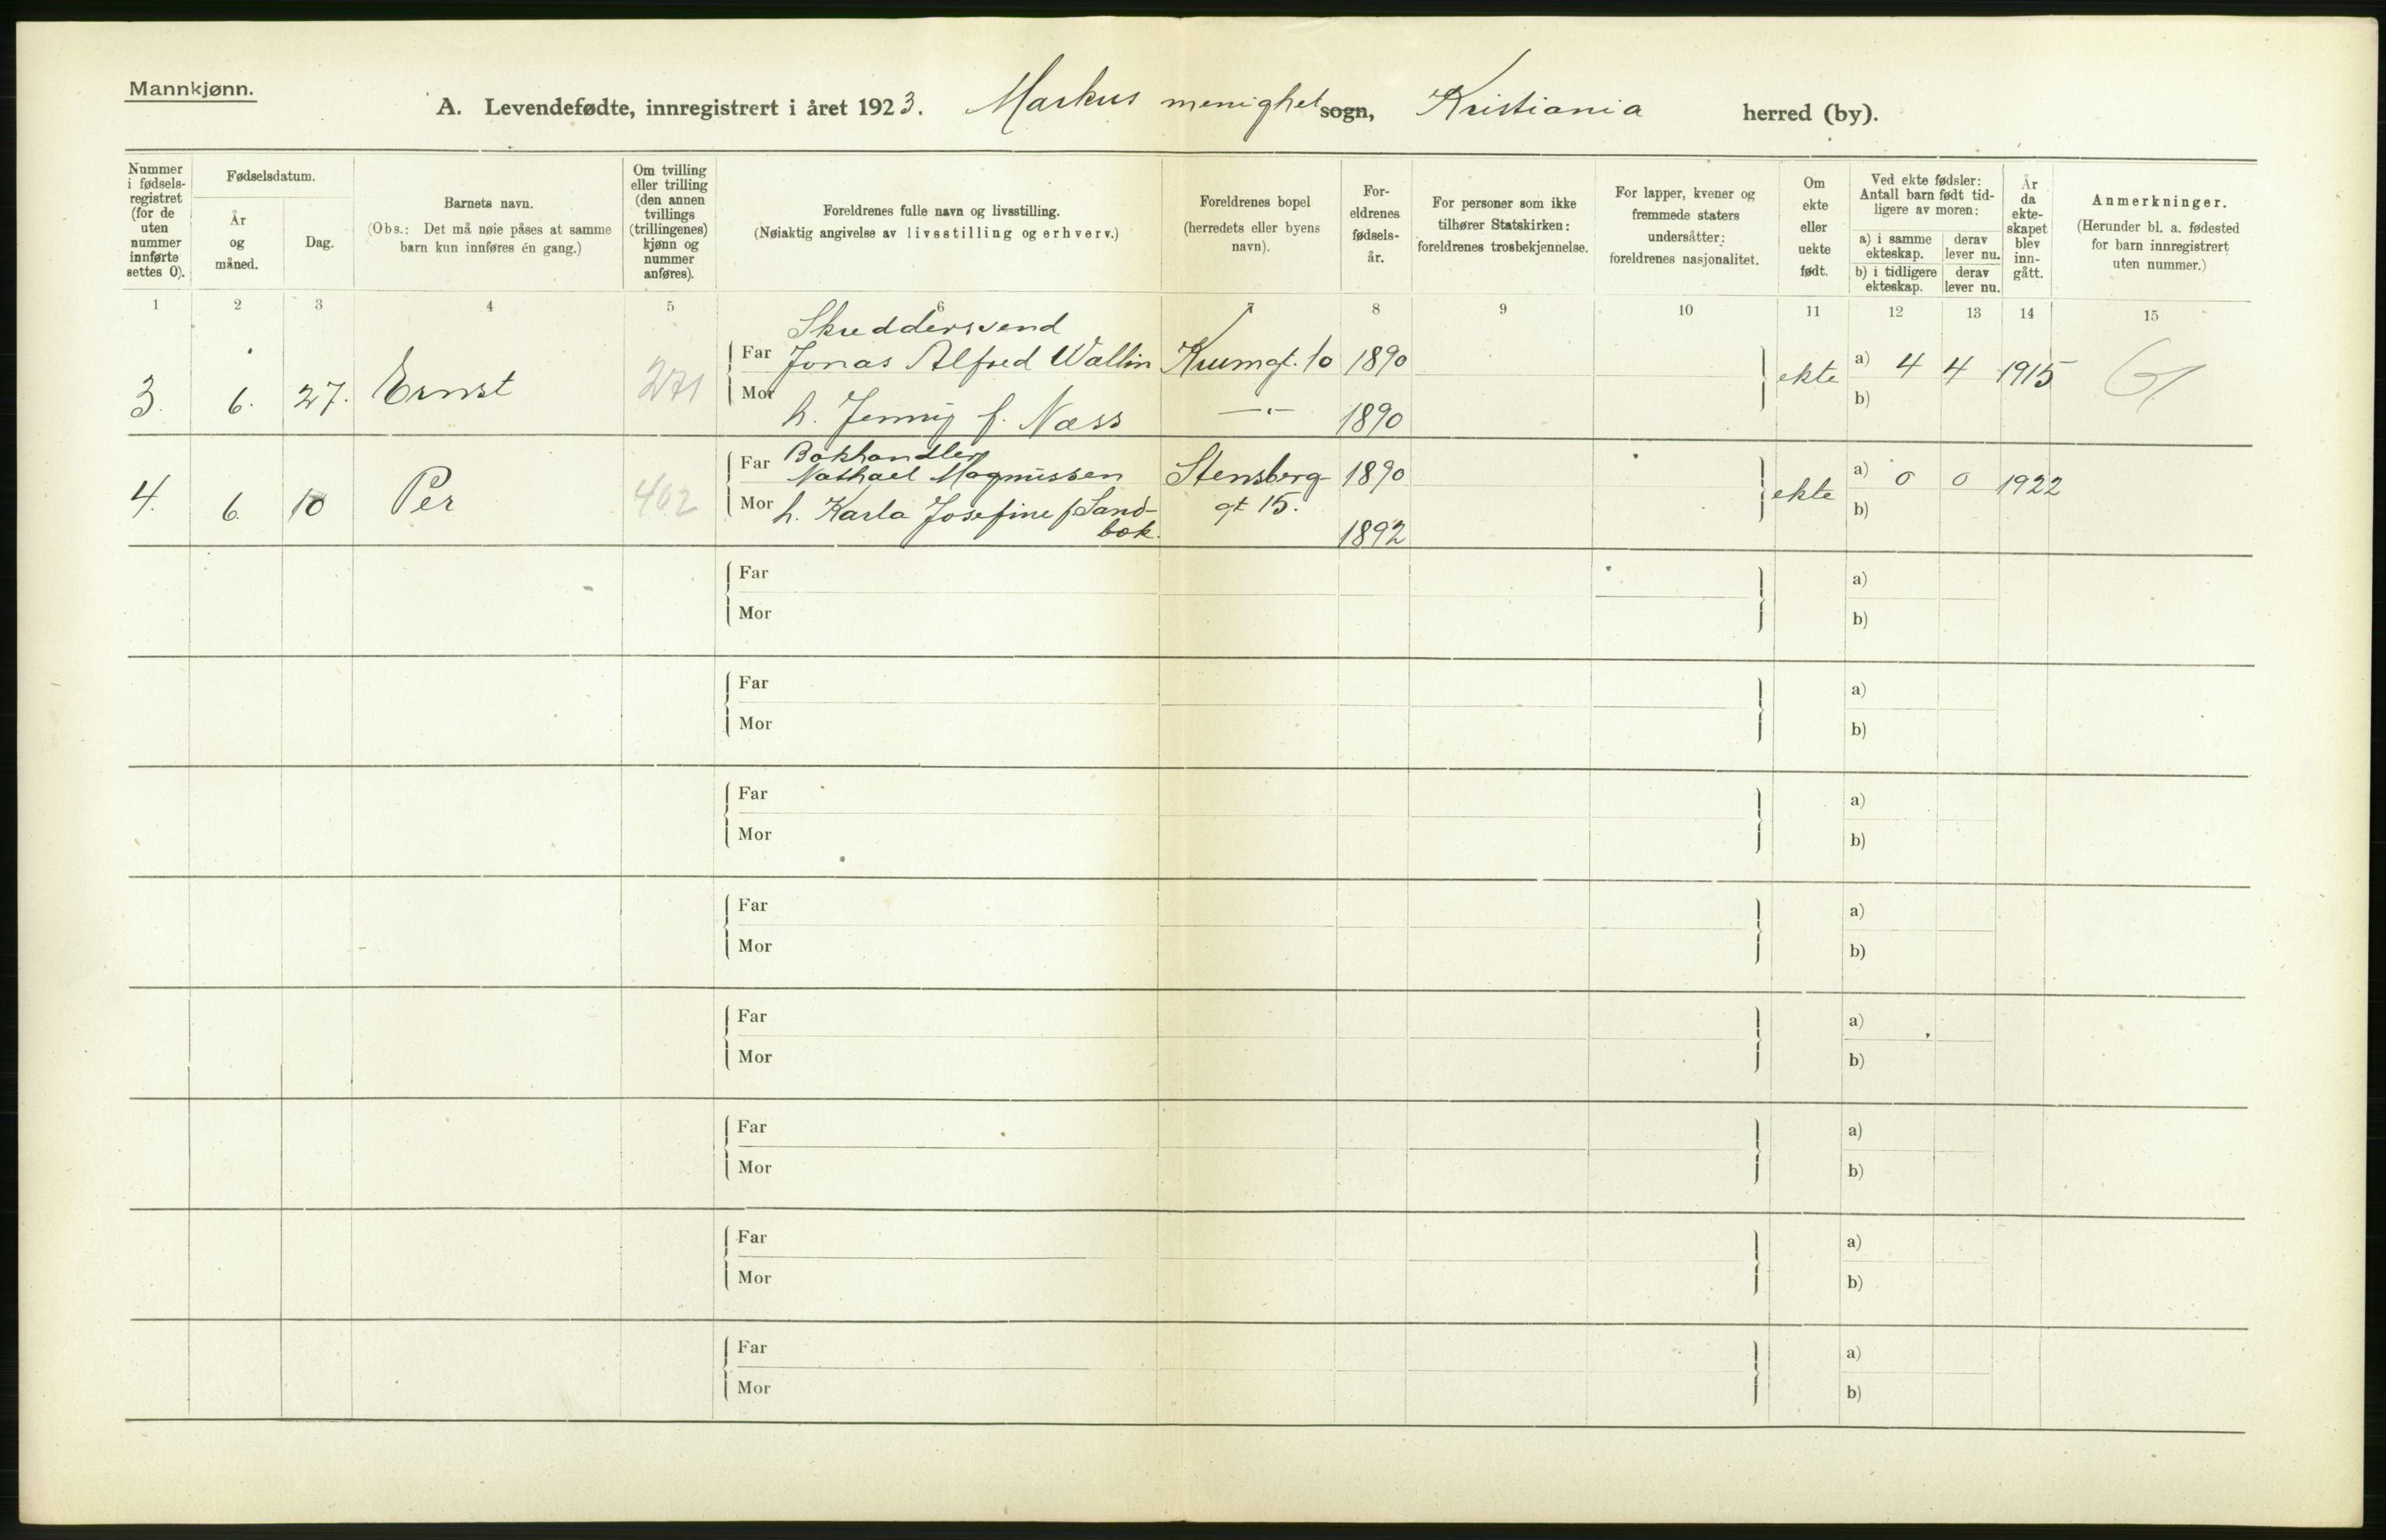 Mannkjønn.
A. Levendefødte, innregistrert i året 1923. Markus menighet sogn, Kristiania herred (by).
Nummer i fødselsregistret (for de uten nummer innførte settes 0).
Fødselsdatum.
År og måned.
Dag.
Barnets navn.
(Obs.: Det må nøie påses at samme barn kun innføres én gang.)
Om tvilling eller trilling (den annen tvillings (trillingenes) kjønn og nummer anføres).
Foreldrenes fulle navn og livsstilling.
(Nøiaktig angivelse av livsstilling og erhverv.)
Foreldrenes bopel
(herredets eller byens navn).
Foreldrenes fødselsår.
For personer som ikke tilhører Statskirken: foreldrenes trosbekjennelse.
For lapper, kvener og fremmede staters undersåtter: foreldrenes nasjonalitet.
Om ekte eller uekte født.
Ved ekte fødsler:
Antall barn født tidligere av moren:
a) i samme ekteskap.
derav lever nu.
b) i tidligere ekteskap.
derav lever nu.
År da ekteskapet blev inngått.
Anmerkninger.
(Herunder bl. a. fødested for barn innregistrert uten nummer.)
1 2 3 4 5 6 7 8 9 10 11 12 13 14 15
Skreddersvend
3. 6. 27. Ernst 271 Far Jonas Alfred Wallin Krumgt. 10 1890 ekte a) 4 4 1915
Mor h. Jenny f. Næss —"— 1890 b)
Bokhandler
4. 6. 10 Per 402 Far Nathael Magnussen Stensberg- 1890 ekte a) 0 0 1922
Mor h. Karla Josefine f Sand- gt 15. b)
bæk. 1892
Far a)
Mor b)
Far a)
Mor b)
Far a)
Mor b)
Far a)
Mor b)
Far a)
Mor b)
Far a)
Mor b)
Far a)
Mor b)
Far a)
Mor b)